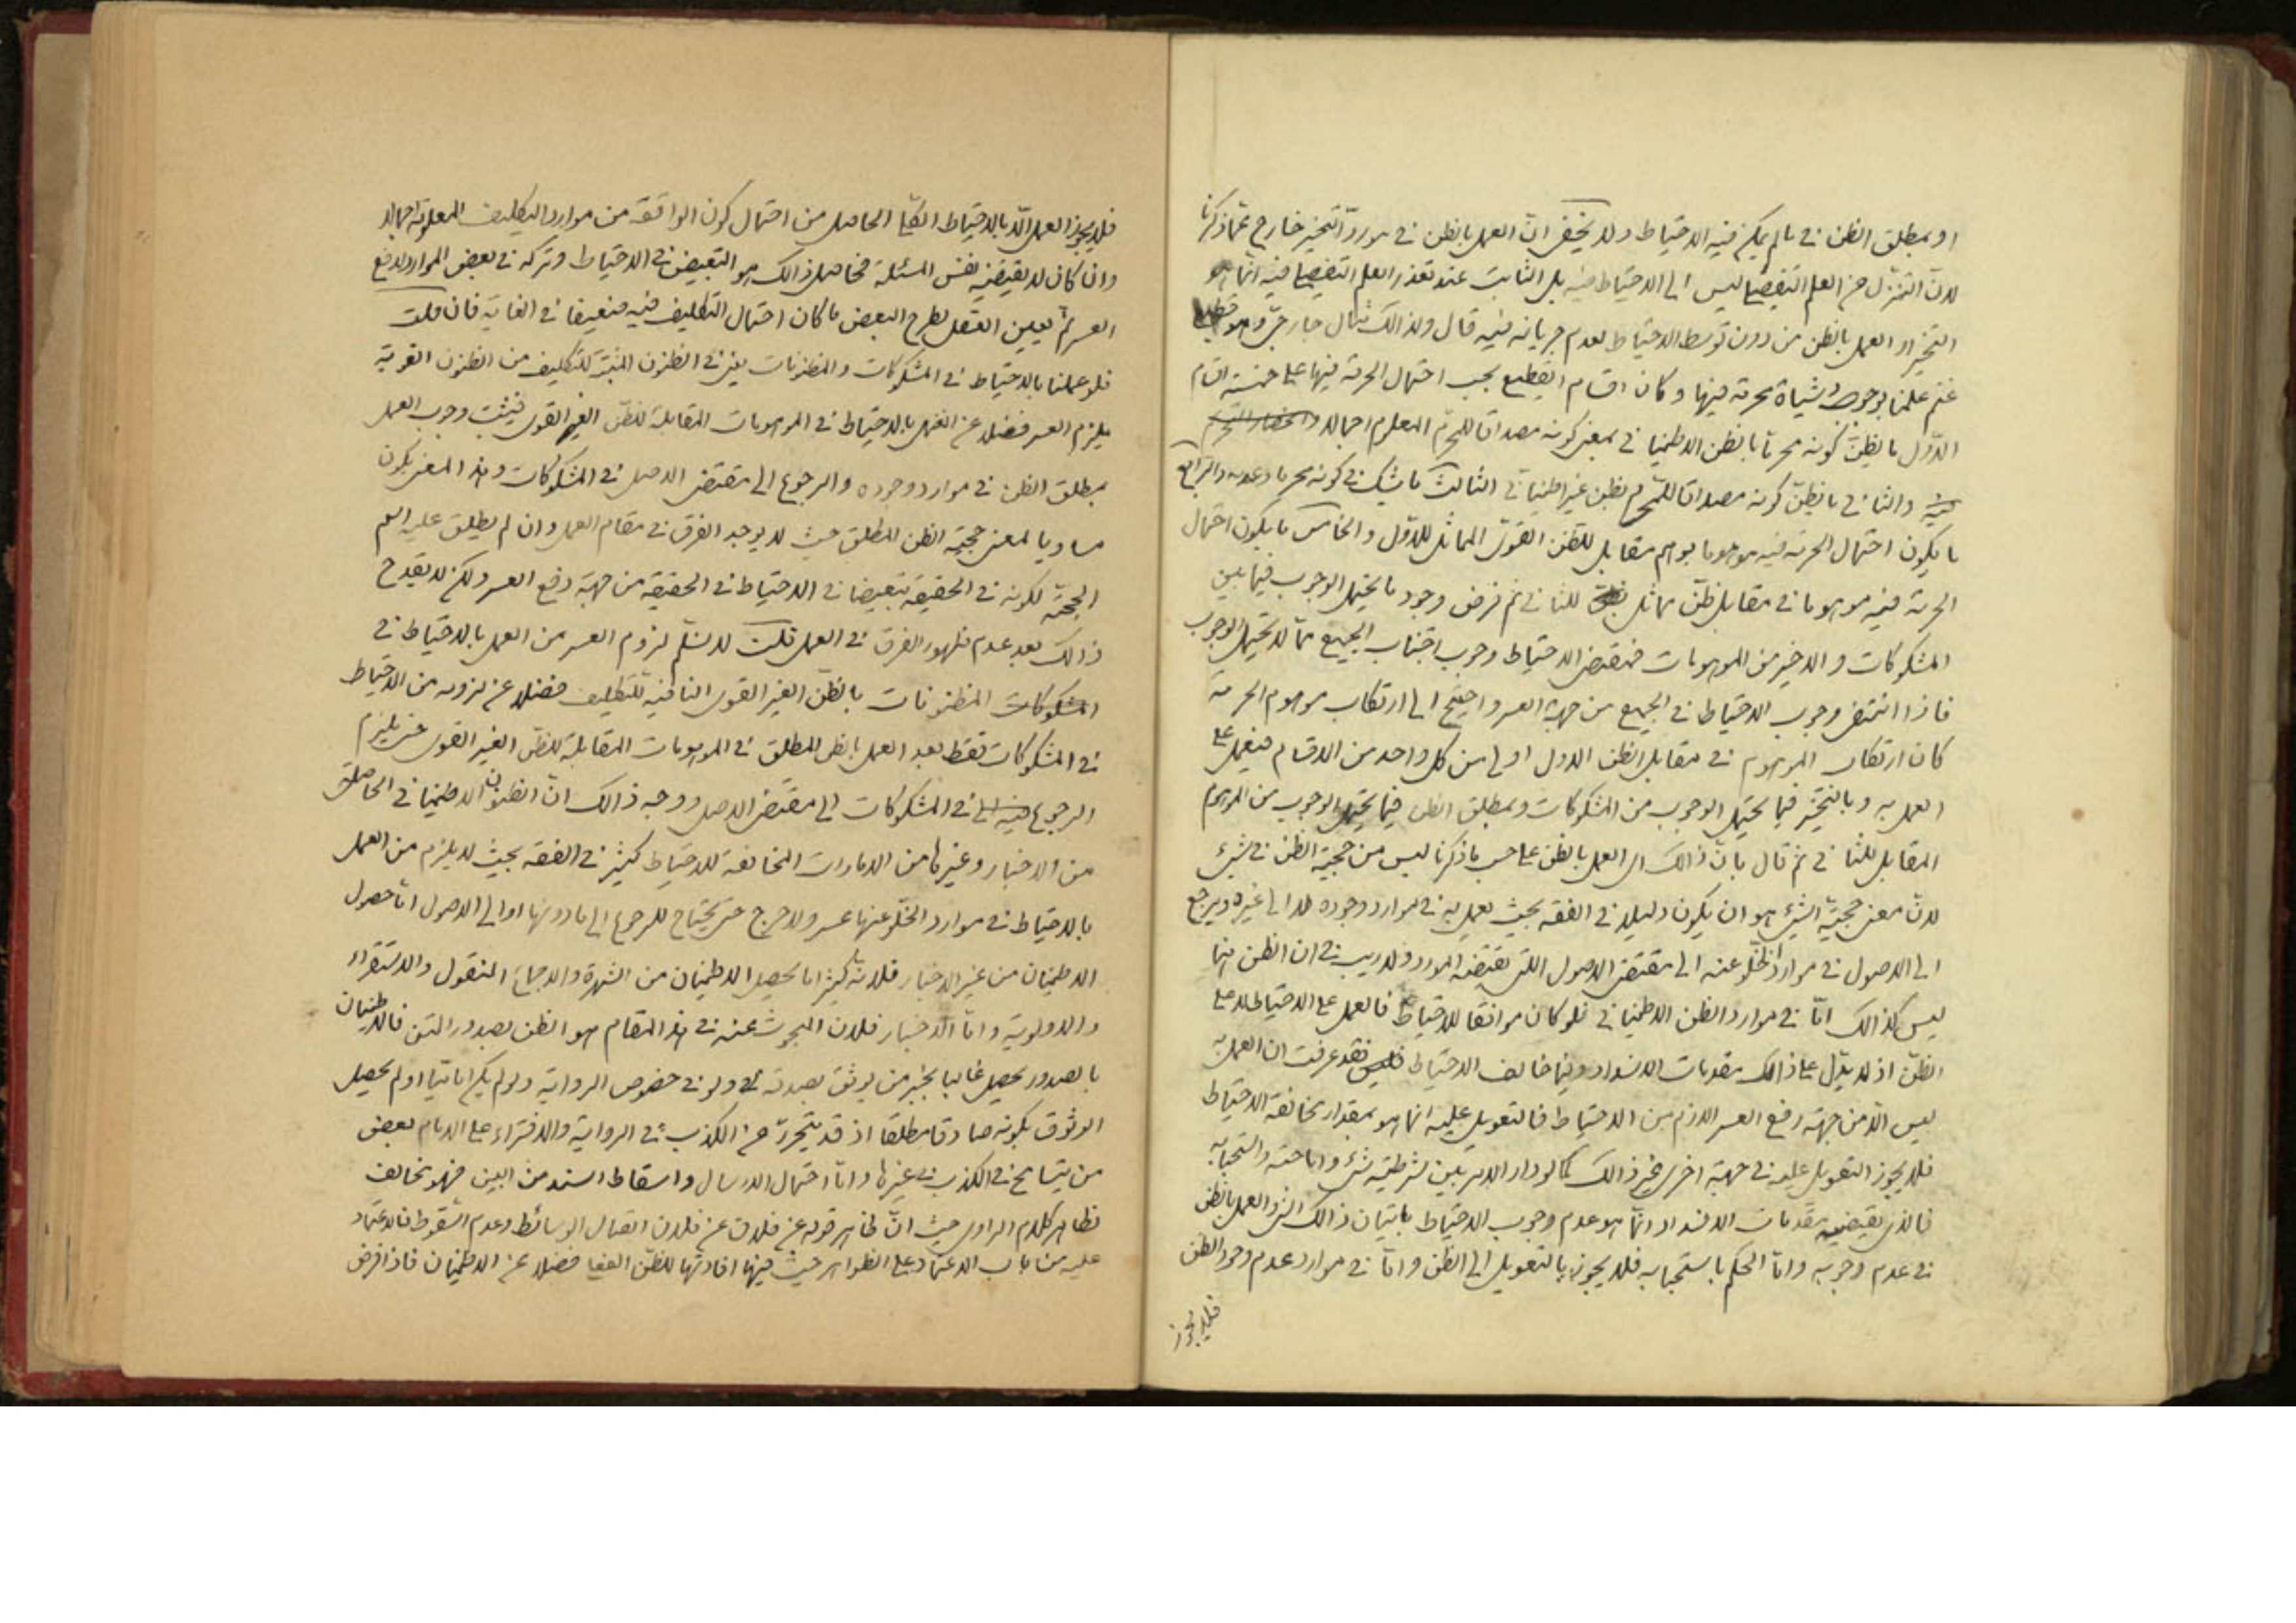 او بمطلق الظن في ما لم يمكن فيه الاحتياط ولا يخفى ان العمل بالظن في مورد التخيير خارج عما ذكرنا
لان التنزل من العلم التفصيلي ليس الى الاحتياط فيه بل الثابت عند تعذر العلم التفصيلي فيه انما هو
التخيير او العمل بالظن من دون توسط الاحتياط لعدم جريانه فيه قال ولذالك مثال خارجي وهو قطيع
غنم علمنا بوجود شياة محرمة فيها وكان اقسام القطيع بحسب احتمال الحرمة فيها على خمسة اقسام
الاول ما يظن كونه محرما بالظن الاطميناني بمعنى كونه مصداقا للمحرم المعلوم اجمالا
والثاني ما يظن كونه مصداقا للمحرم بظن غير اطميناني الثالث ما يشك في كونه محرما وعدمه والرابع
ما يكون احتمال الحرمة فيه موهوما بوهم مقابل للظن القوي المماثل للاول والخامس ما يكون احتمال
الحرمة فيه موهوما في مقابل ظن مماثل للثاني ثم فرض وجود ما يحتمل الوجوب فيما بين
المشكوكات والاخير من الموهومات فمقتضى الاحتياط وجوب اجتناب الجميع مما لا يحتمل الوجوب
فاذا انتفى وجوب الاحتياط في الجميع من جهة العسر واحتيج الى ارتكاب موهوم الحرمة
كان ارتكاب الموهوم في مقابل الظن الاول اولى من كل واحد من الاقسام فيعمل على
العمل به وبالتخيير فيما يحتمل الوجوب من المشكوكات وبمطلق الظن فيما يحتمل الوجوب من الموهوم
المقابل للثاني ثم قال بان ذالك اي العمل بالظن على حسب ما ذكرنا ليس من حجية الظن في شيء
لان معنى حجية الشيء هو ان يكون دليلا في الفقه بحيث يعمل به في موارد وجوده لا الى غيره ويرجع
الى الاصول في موارد الخلو عنه الى مقتضى الاصول اللتي تقتضيه المورد ولا ريب في ان الظن فيها
ليس كذالك اما في موارد الظن الاطميناني فلو كان موافقا للاحتياط فالعمل على الاحتياط لا على
الظن اذ لا يدل على ذالك مقدمات الانسداد وفيما خالف الاحتياط فقد عرفت ان العمل به
ليس الا من جهة رفع العسر اللازم من الاحتياط فالتعويل عليه انما هو بمقدار مخالفة الاحتياط
فلا يجوز التعويل عليه في جهة اخرى غير ذالك كما لو دار الامر بين شرطية شيء واباحته واستحبابه
فالذي يقتضيه مقدمات الانسداد انما هو عدم وجوب الاحتياط باتيان ذالك الشيء والعمل بالظن
في عدم وجوبه واما الحكم باستحبابه فلا يجوز بالتعويل الى الظن واما في موارد عدم وجود الظن
فلا يجوز
فلا يجوز العمل الا بالاحتياط الكلي الحاصل من احتمال كون الواقعة من موارد التكليف المعلومة اجمالا
وان كان لا يقتضيه نفس المسئلة فحاصل ذالك هو التبعيض في الاحتياط وتركه في بعض الموارد لدفع
العسر ثم تعيين العقل لطرح البعض ما كان احتمال التكليف فيه ضعيفا في الغاية فان قلت
فلو عملنا بالاحتياط في المشكوكات والمظنونات يعني في الظنون المثبتة للتكليف من الظنون القوية
يلزم العسر فضلا عن العمل بالاحتياط في الموهومات المقابلة للظن الغير القوي فيثبت وجوب العمل
بمطلق الظن في موارد وجوده والرجوع الى مقتضى الاصل في المشكوكات وهذا المعنى يكون
مساويا لمعنى حجية الظن المطلق حيث لا يوجد الفرق في مقام العمل وان لم يطلق عليه اسم
الحجية لكونه في الحقيقة تبعيضا في الاحتياط في الحقيقة من جهة رفع العسر ولكن لا يقدح
ذالك بعد عدم ظهور الفرق في العمل قلت لا نسلم لزوم العسر من العمل بالاحتياط في
المظنونات بالظن الغير القوي النافية للتكليف فضلا عن لزومه من الاحتياط
في المشكوكات فقط بعد العمل بالظن المطلق في الموهومات المقابلة للظن الغير القوي حتى يلزم
الرجوع في المشكوكات الى مقتضى الاصل ووجه ذالك ان الظنون الاطميناني الحاصلة
من الاخبار وغيرها من الامارات المخالفة للاحتياط كثير في الفقه بحيث لا يلزم من العمل
بالاحتياط في موارد الخلو عنها عسر ولا حرج حتى يحتاج للرجوع الى ما دونها او الى الاصول اما حصول
الاطمينان من غير الاخبار فلانه كثيرا ما يحصل الاطمينان من الشهرة والاجماع المنقول والاستقراء
والاولوية واما الاخبار فلان المبحوث عنه في هذا المقام هو الظن بصدور المتن فالاطمينان
بالصدور يحصل غالبا بخبر من يوثق بصدقه ولو في خصوص الرواية ولو لم يكن اماميا او لم يحصل
الوثوق بكونه صادقا مطلقا اذ قد يتحرز عن الكذب في الرواية والافتراء على الامام بعض
من يتسامح في الكذب في غيرها واما احتمال الارسال واسقاط السند من البين فهو مخالف
لظاهر كلام الراوي حيث ان ظاهر قوله عن فلان عن فلان اتصال الوسائط وعدم السقوط فالاعتماد
عليه من باب الاعتماد على الظواهر حيث فيها افادتها للظن الفعلي فضلا عن الاطمينان فاذا فرض